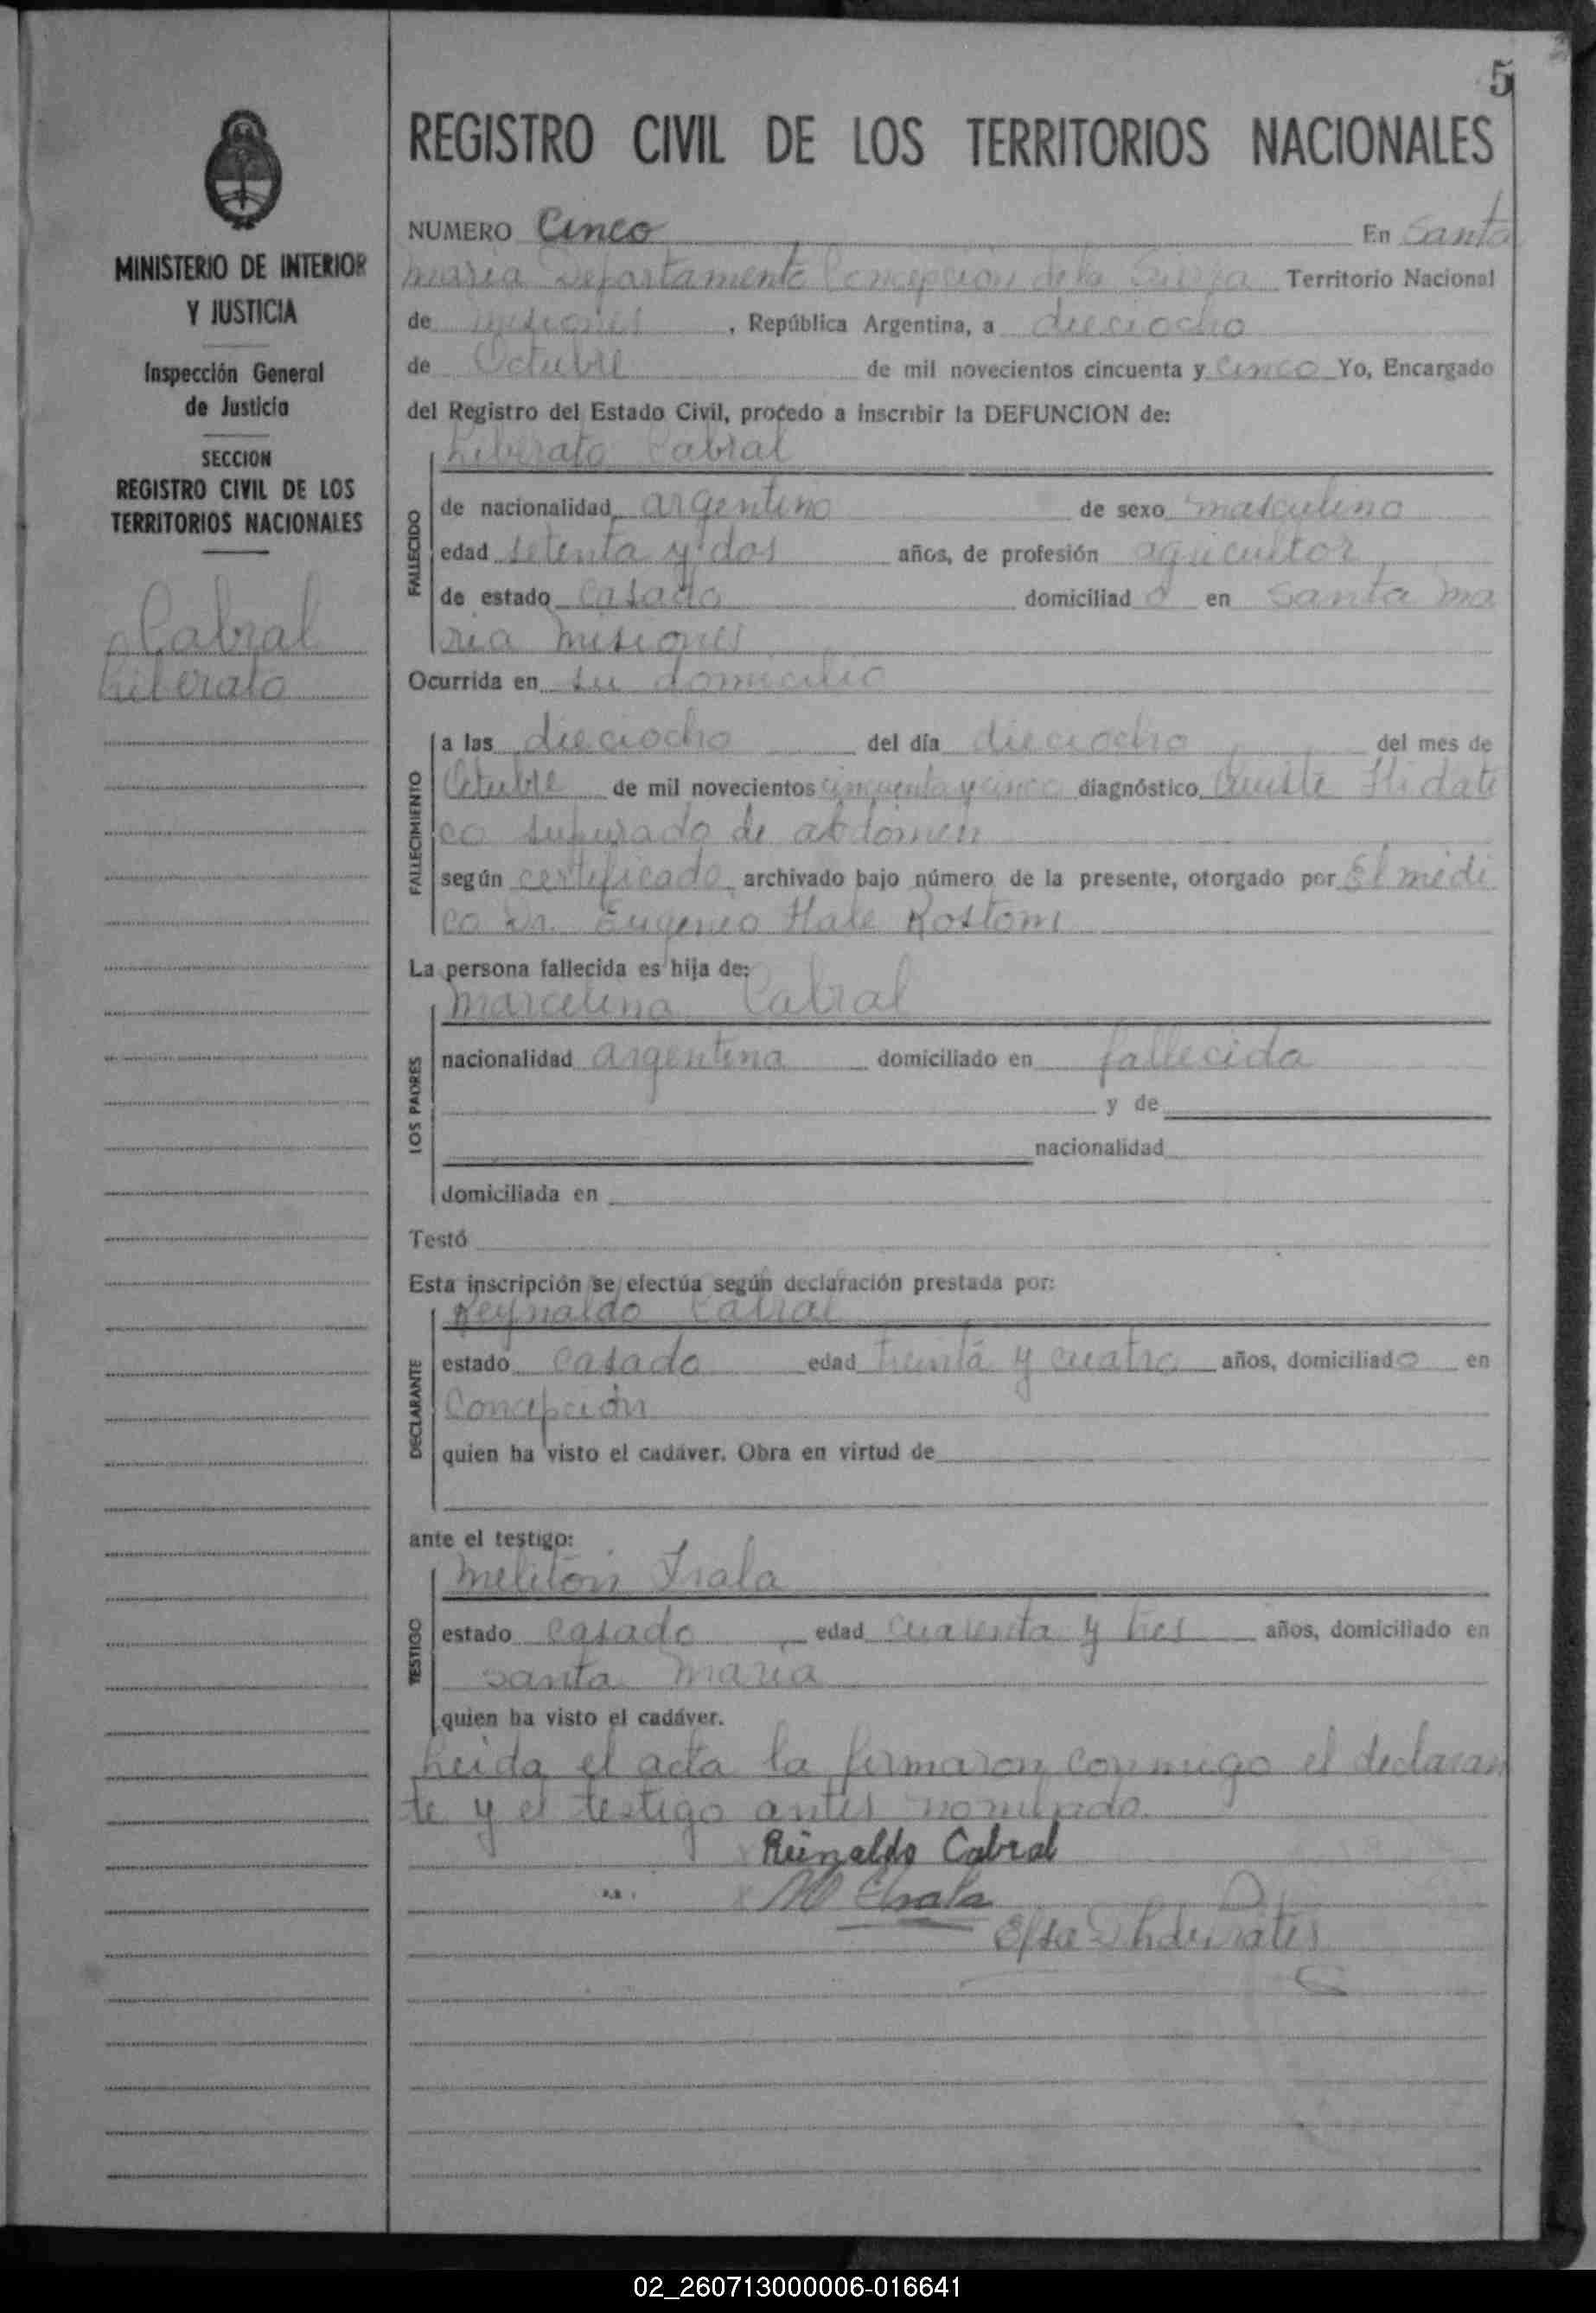 5
REGISTRO CIVIL DE LOS TERRITORIOS NACIONALES
MINISTERIO DE INTERIOR
Y JUSTICIA
Inspección General
de Justicia
SECCION
REGISTRO CIVIL DE LOS
TERRITORIOS NACIONALES
Cabral
Liberato
NUMERO Cinco En Santa
maria Departamento Concepción de la Sierra Territorio Nacional
de Misiones, República Argentina, a dieciocho
de Octubre de mil novecientos cincuenta y cinco Yo, Encargado
del Registro del Estado Civil, procedo a inscribir la DEFUNCION de:
Liberato Cabral
FALLECIDO
de nacionalidad argentino de sexo masculino
edad setenta y dos años, de profesión agricultor
de estado casado domiciliado en Santa Ma
ria Misiones
Ocurrida en su domicilio
FALLECIMIENTO
a las dieciocho del día dieciocho del mes de
Octubre de mil novecientos cincuenta y cinco diagnóstico Quiste Hidati
co supurado de abdomen
según certificado archivado bajo número de la presente, otorgado por El medi
co Dr. Eugenio Kostom
La persona fallecida es hija de:
LOS PADRES
Marcelina Cabral
nacionalidad argentina domiciliado en fallecida
y de
nacionalidad
domiciliada en
Testó
Esta inscripción se efectúa según declaración prestada por:
DECLARANTE
Reynaldo Cabral
estado casado edad treinta y cuatro años, domiciliado en
Concepción
quien ha visto el cadáver. Obra en virtud de
ante el testigo:
TESTIGO
Melitón Irala
estado casado edad cuarenta y tres años, domiciliado en
Santa Maria
quien ha visto el cadáver.
Leida el acta la firmaron conmigo el declaran
te y el testigo antes nominado.
Reinaldo Cabral
M Irala
02_260713000006-016641